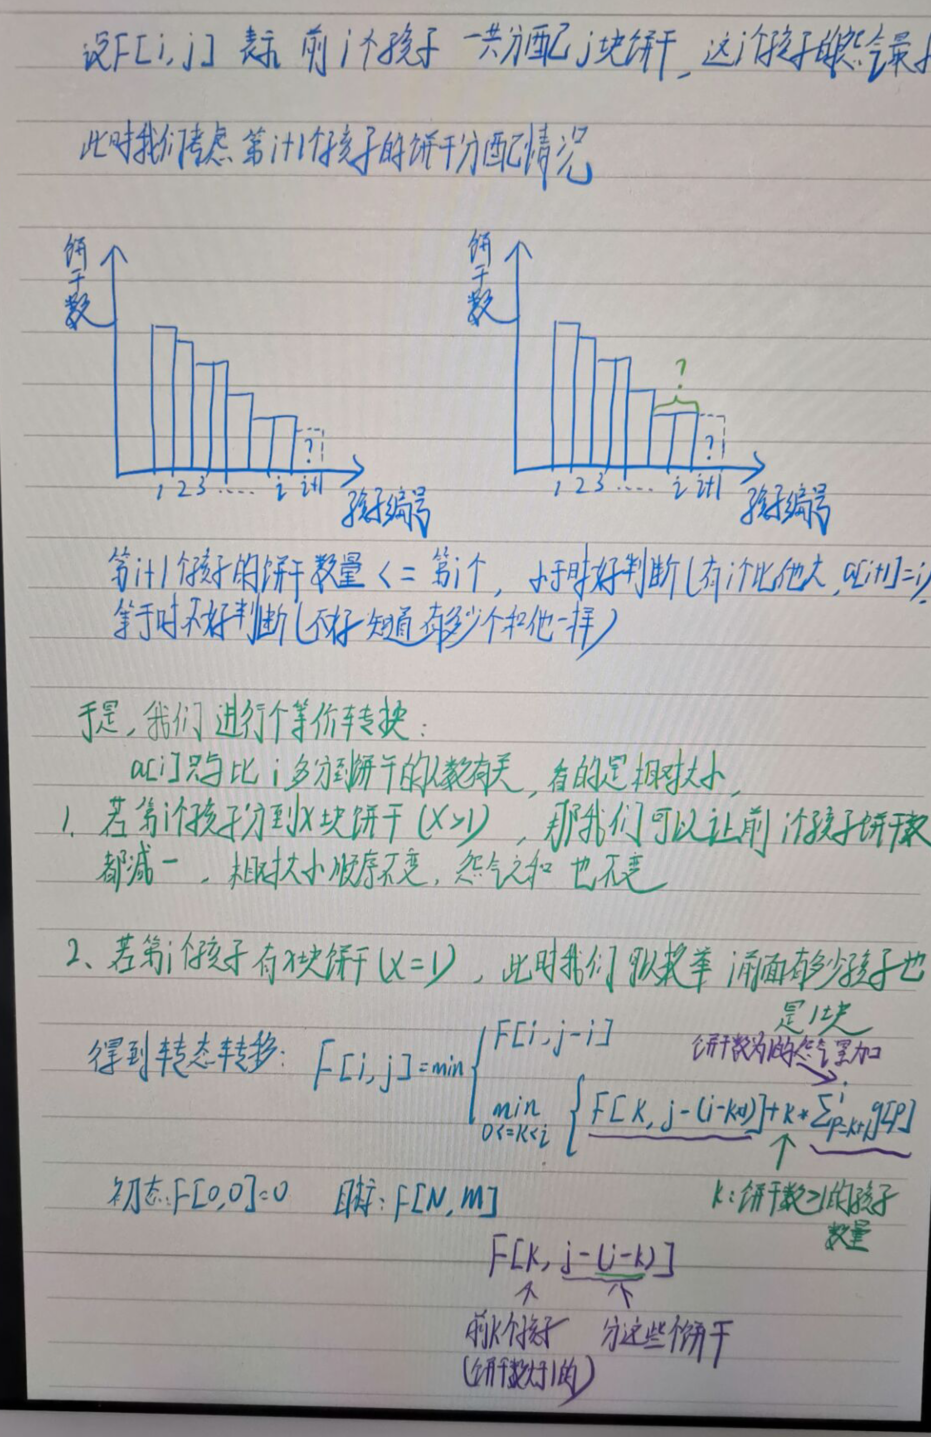 设F[i,j] 表示 前i个孩子 一共分配j块饼干,这i个孩子的怨气最
此时我们考虑第i+1个孩子的饼干分配情况
饼干数
饼干数
?
? ?
1 2 3 .... i i+1
1 2 3 .... i i+1
孩子编号
孩子编号
第i+1个孩子的饼干数量<=第i个,小于时好判断(有i个比他大,a[i+1]=i)
等于时不好判断(不好知道有多少个和他一样)
于是,我们进行个等价转换:
a[i]只与比i多分到饼干的人数有关,看的是相对大小,
1. 若第i个孩子分到X块饼干(X>1),那我们可以让前i个孩子饼干数
都减一,相对大小顺序不变,怨气之和也不变
2、若第i个孩子有X块饼干(X=1),此时我们可以枚举i前面有多少孩子也
是1块
饼干数为1的怨气累加
得到转态转移: F[i,j]=min
F[i,j-i]
min 0<=K<i { F[K,j-(i-k)]+k*∑p=k+1 i g[p]
初态:F[0,0]=0 目标:F[N,M]
k:饼干数>1的孩子
数量
F[k,j-(i-k)]
前k个孩子 分这些个饼干
(饼干数大于1的)